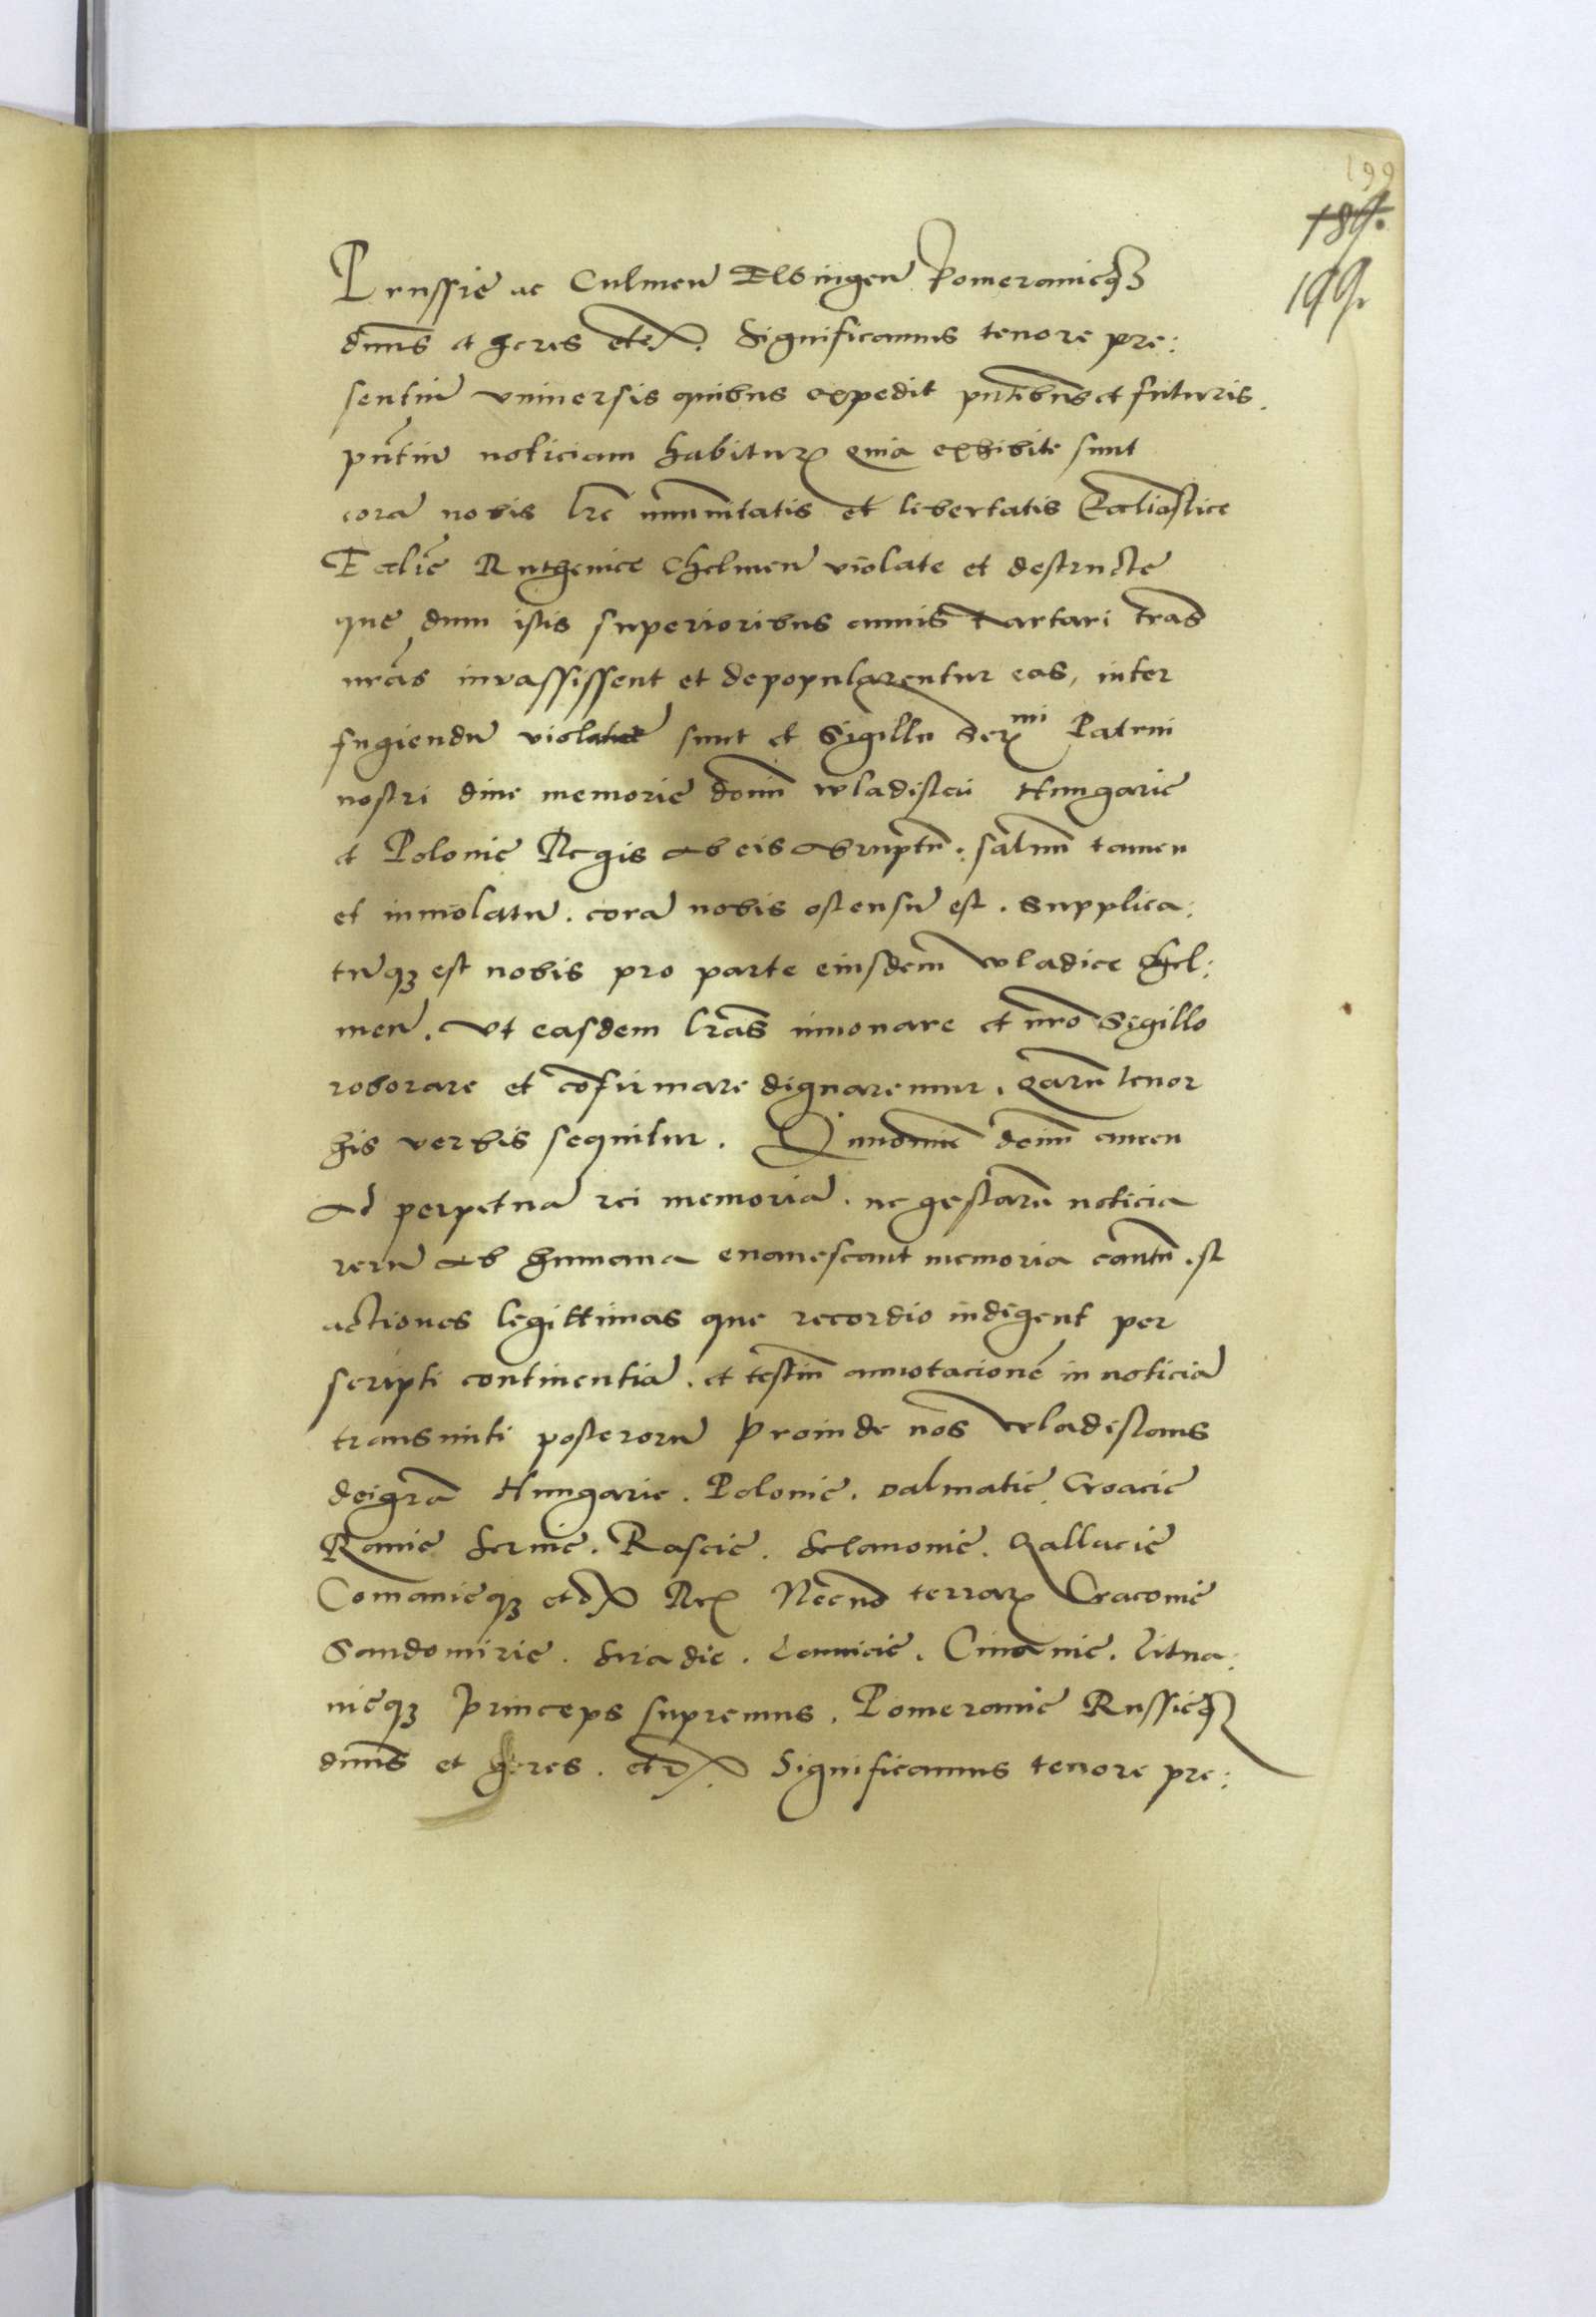 199
189.
199.
Prussie ac Culmeñ Elbingeñ Pomeranieqʒ
dnūs et heres etc̃. Significamus tenore pre:
sentiū vniuersis quibus expedit pñtibus et futuris.
pñtiū noticiam habiturꝭ quia exhibite sunt
corā nobis lr̃e immunitatis et libertatis Ecclīastice
Eccliē Ruthenice Chelmeñ violate et destructe
que dum istis superioribus annis Tartari tr̃as
nr̃as invassissent et depopularentur eas, inter
fugiendū violate sunt et Sigillū Serᵐⁱ Patrui
nostri diue memorie dom̄ Wladislai Hungarie
et Polonie Regis ab eis abruptū. saluū tamen
et inuiolatū. corā nobis ostensū est. Supplica:
tūqʒ est nobis pro parte eiusdem Wladice Hel:
meñ. Vt easdem lr̃as innouare et nr̃o Sigillo
roborare et cōfirmare dignaremur. Qarū tenor
his verbis sequitur. In nomine domī amen
Ad perpetuā rei memoriā. ne gestarū noticia
rerū ab humana euanescant memoria cautū. st
actiones legittimas que recordio indigent per
scripti continentiā. et testiū annotacionē in noticiā
transmitti posterorū Proinde nos Wladislaus
dei gr̃a Hungarie. Polonie. Dalmatie. Croacie
Ramie Seruie. Rascie. Sclauonie. Gallacie
Comanieqʒ etc̃ Rex Necnō terrarꝭ Cracouie
Sandomirie. Siradie. Lancicie. Cuiauie. Litua:
nieqʒ Princeps supremus. Pomeranie Russieqʒ
dnūs et heres. etc̃. Significamus tenore pre: